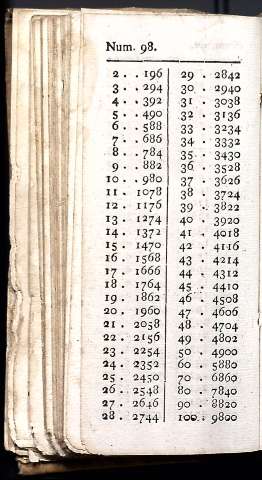 Num. 98.
2 . . 196 29 . 2842
3 . . 294 30 . 2940
4 . . 392 31 . 3038
5 . . 490 32 . 3136
6 . . 588 33 . 3234
7 . . 686 34 . 3332
8 . . 784 35 . 3430
9 . . 882 36 . 3528
10 . . 980 37 . 3626
11 . 1078 38 . 3724
12 . 1176 39 . 3822
13 . 1274 40 . 3920
14 . 1372 41 . 4018
15 . 1470 42 . 4116
16 . 1568 43 . 4214
17 . 1666 44 . 4312
18 . 1764 45 . 4410
19 . 1862 46 . 4508
20 . 1960 47 . 4606
21 . 2058 48 . 4704
22 . 2156 49 . 4802
23 . 2254 50 . 4900
24 . 2352 60 . 5880
25 . 2450 70 . 6860
26 . 2548 80 . 7840
27 . 2646 90 . 8820
28 . 2744 100 . 9800